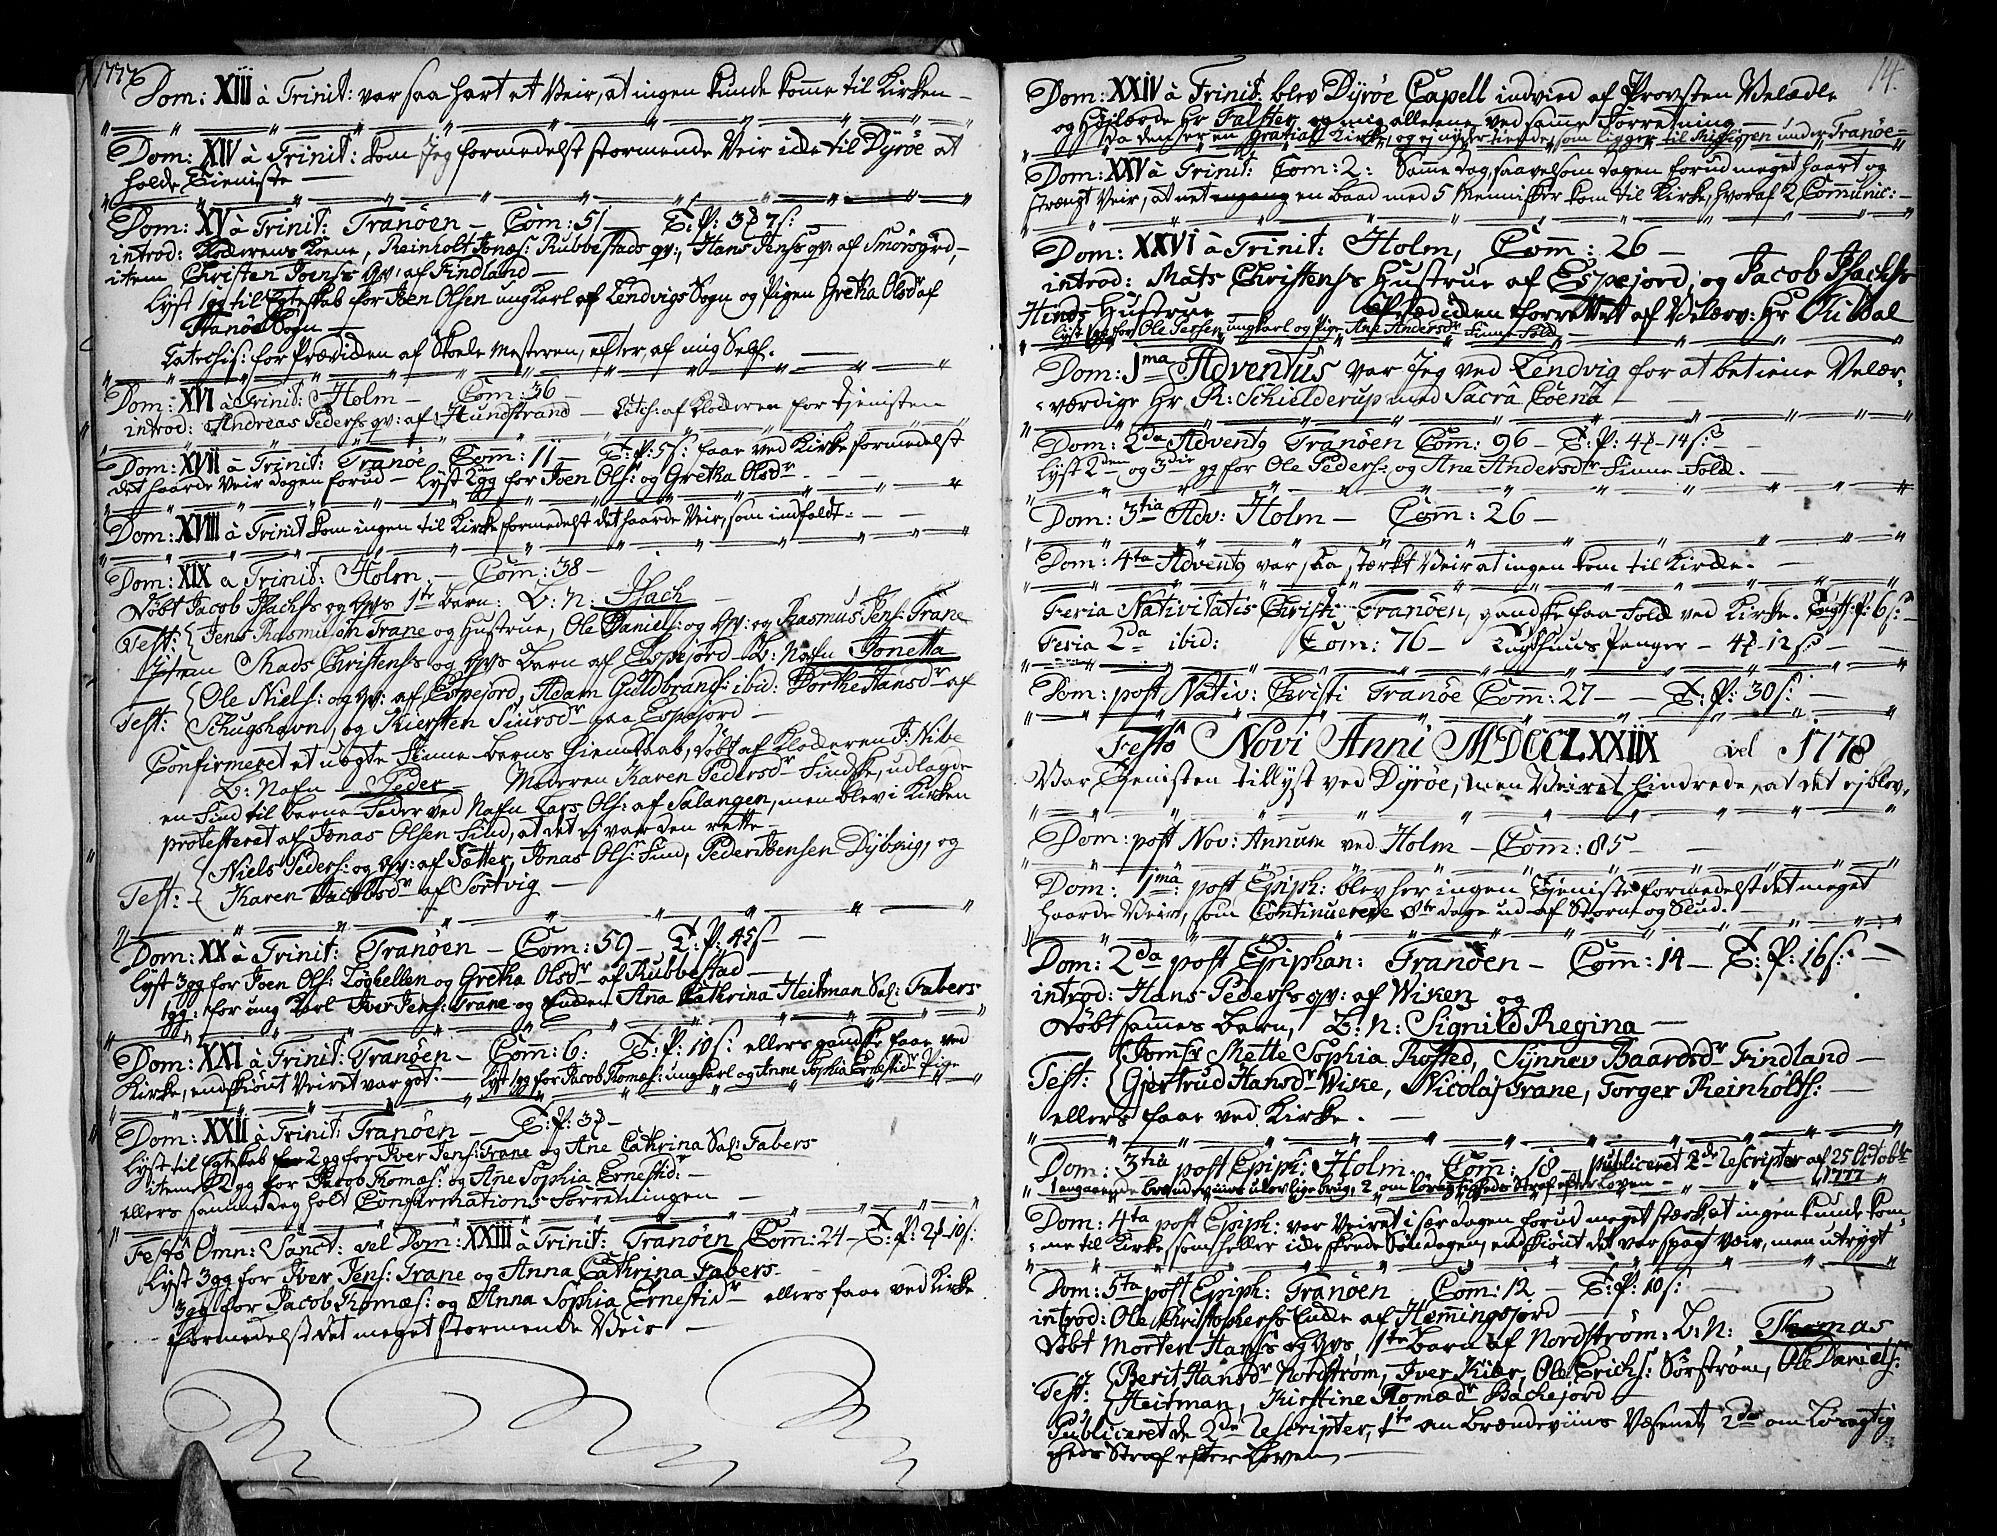 1777
Dom: XIII à Trinit: var saa hart et Veir, at ingen kunde komme til Kirken
Dom: XIV à Trinit: kom Jeg formedelst stormende Veir icke til Dyröe at
holde Tieniste
Dom: XV à Trinit: Tranöen – Com: 51 – T: P: 7 s:
introd: Kloderens Koene, Reinholt Jonæs: Rubbestads qv:, Hans Jenss qv: af
item Christen Joenss qv: af Findland
Lyst 1 gg til Egteskab for Joen Olsen ungkarl af Lendvigs Sogn og Pigen Gretha Olsd af
Tranöe Sogn
Catechis: for Prædiken af Skole Mesteren, efter, af mig Self.
Dom: XVI à Trinit: Holm – Com: 36
introd: Andreas Pederss qv: af Hundstrand – Catech: af Kloderen for tjenisten
Dom: XVII à Trinit: Tranöe Com: 11 – T: P: 5 s: faae ved Kirke formedelst
det haarde Veir dagen forud – Lyst 2 gg for Joen Ols: og Gretha Olsdr
Dom: XVIII à Trinit kom ingen til Kirke formedelst det haarde Veir, som indfaldt.
Dom: XIX a Trinit: Holm. – Com: 38 –
Döbt Jacob Isachss og Hvs 1te Barn. B: N: Isach
Test: Jens Rasmusön Trane og Hustrue, Ole Daniels: og qv: og Rasmus Jens: Trane
Item Mads Christenss og Hvs Barn af Espejord B: Nafn Jonetta
Ole Niels: og qv: af Espejord, Adam Guldbrands: ibid: Dorthe Hansdr af
Test: Schugshavn, og Kiersten Siursdr paa Espejord
Confirmeret et uægte Finne Barns Hiemdaab, döbt af Kloderen J: Nibe
B: Nafn Peder Moderen Karen Pedersdr Findske, udlagde
en Find til Barne Fader ved Nafn Lars Ols: af Salangen, men blev i Kirken
protesteret af Jonas Olsen Find, at det ej var den rette
Niels Peders: og qv: af Sætter, Jonas Ols: Find, Peder Ibensen Dybvig, og
Test: Karen Jacobsdr af Sörtvig
Dom: XX à Trinit: Tranöen – Com: 59 – T: P: 45 s
Lyst 3 gg for Joen Ols: og Gretha Olsdr af Rubbestad
1 gg: for ung Karl Iver Jens: Trane og Enden Ana Kathrina Heitman Sal: Fabers
Dom: XXI à Trinit: Tranöen – Com: 6: T: P: 10 s: ellers gandske faae ved
Kirke, endskiönt Veiret var got. – Lyst 1 gg for Jacob Thomæs: ungkarl og Anne Sophia Ernestidr Pige
Dom: XXII à Trinit: Tranöen – T: P:
Lyst til Egteskab 2 gg for Iver Jens: Trane og Ane Cathrina Sal: Fabers
item 2 gg for Jacob Thomæs: og Ane Sophia Ernestid:
ellers sammedag holt Confirmations Forretningen
Festo Omn: Sanct: vel Dom: XXIII à Trinit: Tranöen Com: 24 – T: P: 10 s:
Lyst 3 gg for Iver Jens: Trane og Anna Cathrina Fabers
3 gg for Jacob Thomæs: og Anna Sophia Ernestidr – ellers faae ved Kirke
formedelst det meget stormende Veir
14.
Dom: XXIV à Trinit: blev Dyröe Capell indvied af Provsten Velædle
og Höjlærde Hr Falster, og mig alleene ved samme Forretning
Da den er en Gratial Kirke, og ej nyder tiende, som ligger til under Tranöe
Dom: XXV à Trinit: Com: 2: Samme dag, saavelsom dagen forud meget haart og
strængt Veir, at net en baad med 5 Mennisker kom til Kirke, hvoraf 2 Comunic:
Dom: XXVI à Trinit: Holm, Com: 26 –
introd: Mats Christenss Hustrue af Espejord, og Jacob Isachss
Hinds Hustrue Prædiken forrettet af Velærv: Hr Tuldal
Lyst 1 gg for Ole Persen ungkarl og Pige Ane Andersdr Finne Fold
Dom: 1ma Adventus var Jeg ved Lendvig for at betiene Velær-
værdige Hr R: Schielderup med Sacrâ Coenâ
Dom: 2da Advent9 Tranöen Com: 96 – T: P: 4 – 14 s:
Lyst 2den og 3die gg for Ole Peders: og Ane Andersdr Finne Fold.
Dom: 3tia Adv: Holm – Com: 26 –
Dom: 4ta Advent9 var saa stærkt Veir at ingen kom til Kirke.
Feria Nativitatis Christi Tranöen, gandske faa Folk ved Kirke. P: 6 s:
Feria 2da ibid: Com: 76 – Tugthuus Penger – 4 – 12 s:
Dom: post Nativ: Christi Tranöe Com: 27 – T: P: 30 s:
Festô Novi Anni MDCCLXXIIX vel 1778
Var Tjenisten tillyst ved Dyröe, men Veiret hindrede, at det ej blev,
Dom: post Nov: Annum ved Holm – Com: 85 –
Dom: 1ma: post Epiph: blev her ingen Tjeniste formedelst det meget
haarde Veir, som Continuerede 8te dage ud af Storm og Slud.
Dom: 2da post Epiphan: Tranöen – Com: 14 – T: P: 16 s:
introd: Hans Pederss qv: af Wiken og
Döbt sammes Barn, B: N: Signild Regina
Jomfr Mette Sophia Rosted, Synnev Baardsdr Findland
Test: Gjertrud Hansdr Wike, Nicolaj Trane, Torger Reinholts:
ellers faae ved Kirke.
Dom: 3tia post Epiph: Holm. Com: 18 – publiceret 2de Rescripter af 25 Octobr
1 angaaende brændeviins ulovlige brug, 2 om Straf efter Loven – 1777
Dom: 4ta post Epiph: var Veiret i sær dagen forud meget stærk, at ingen kunde kom-
me til Kirke, som heller icke skeede Söndagen, endskiönt det var spagt Vær, men utrygt
Dom: 5ta post Epiph: Tranöen Com: 12 – T: P: 10 s:
introd: Ole Christophers Encke af Hemingsjord
Döbt Morten Hanss og Hvs 1te Barn af Nordström: B: N: Thomas
Berit Hansdr Nordström, Iver Kiær, Ole Erichs: Sörström, Ole Daniels:
Test: Heitman, Kirstine Thomædr Backejord
Publiceret de 2de Rescripter, 1te om Brændeviins Væsenet, 2de om Lösagtig
heds Straf efter Loven